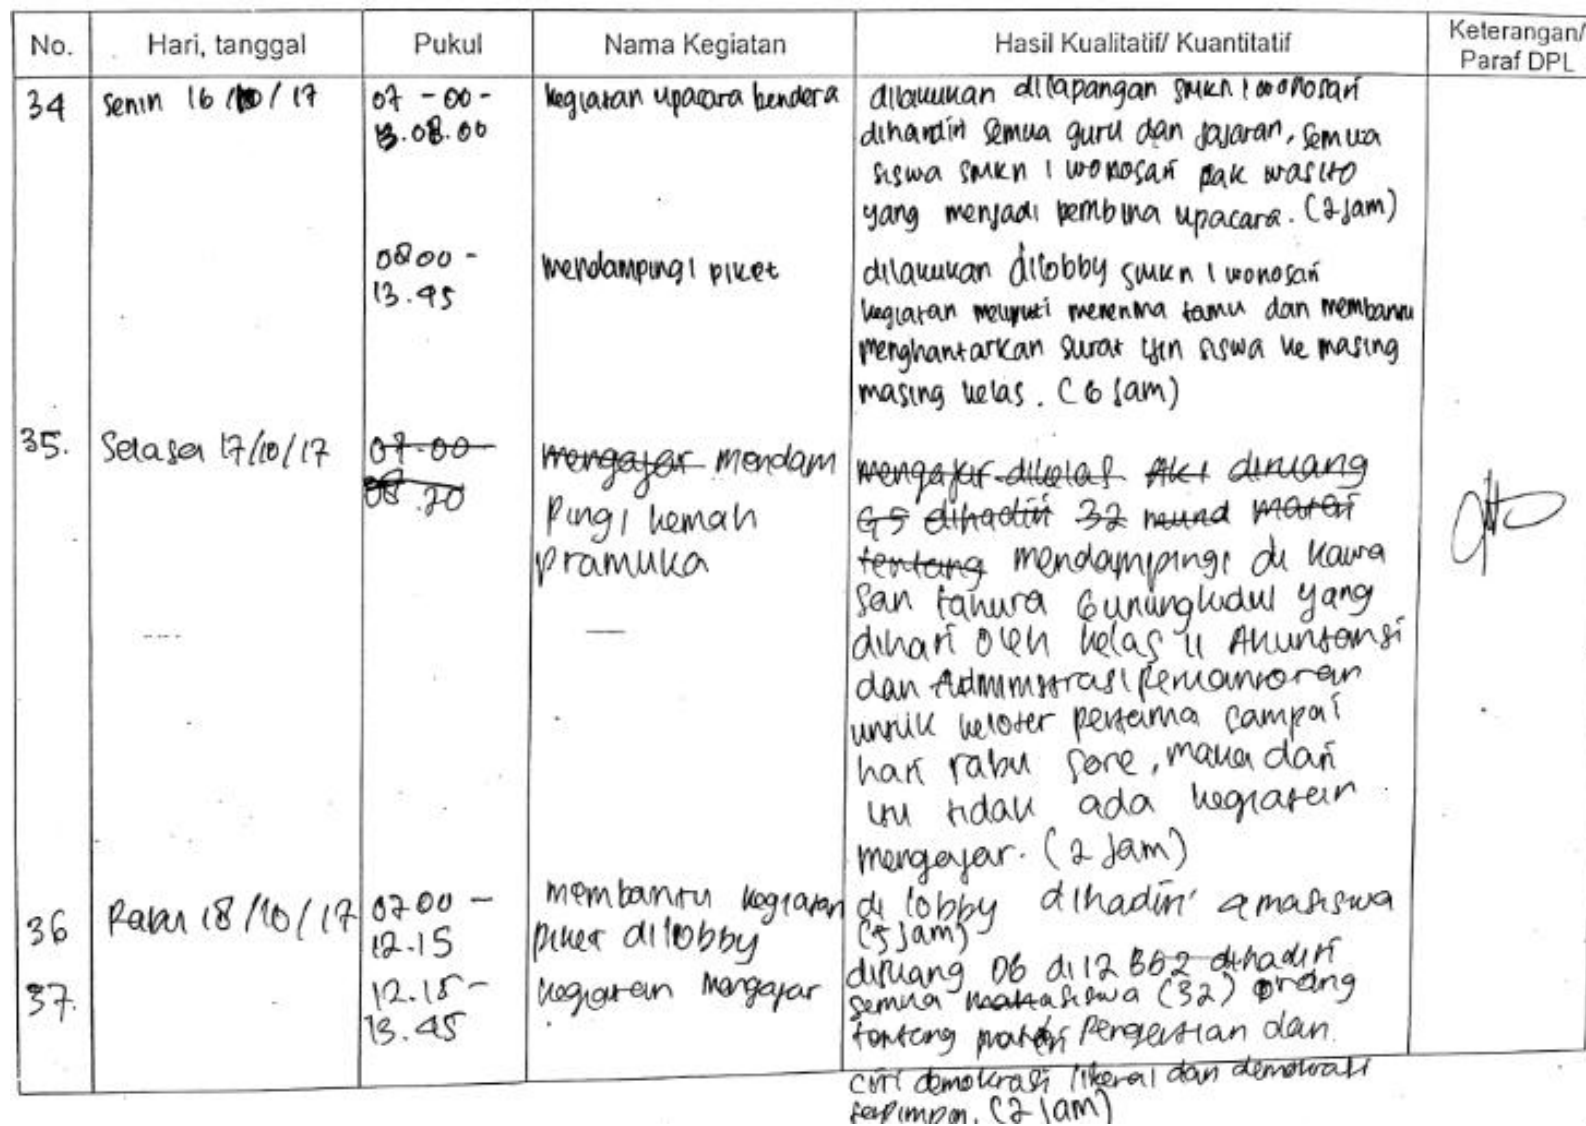 No. Hari, tanggal Pukul Nama Kegiatan Hasil Kualitatif/ Kuantitatif Keterangan/
Paraf DPL
34 Senin 16/10/17 07-00- kegiatan upacara bendera dilakukan dilapangan smkn 1 wonosari
13.08.00 dihardiri semua guru dan jajaran, semua
siswa smkn 1 wonosari pak wasito
yang menjadi pembina upacara. (2 jam)
0800- mendampingi piket dilakukan dilobby smkn 1 wonosari
13.45 kegiatan meliputi menerima tamu dan membantu
menghantarkan surat ijin siswa ke masing
masing kelas. (6 jam)
35. Selasa 17/10/17 07-00 mengajar mendam mengajar dikelas Ak1 diruang
08.20 pingi kemah G5 dihadiri 32 murid
pramuka tentang mendampingi di kawa
san tahura Gunungkidul yang
oleh kelas 11 Akuntansi
dan Administrasi Perkantoran
untuk keloter pertama sampai
hari rabu sore, maka dari
itu tidak ada kegiatan
mengajar. (2 jam)
36 Rabu 18/10/17 0700- membantu kegiatan di lobby dihadiri 4 masiswa
12.15 piket dilobby (5 jam)
37. 12.15- kegiatan mengajar diruang 06 di 12 dihadiri
13.45 semua (32) orang
tentang materi Pengertian dan
ciri demokrasi liberal dan demokrasi
terpimpin. (2 jam)